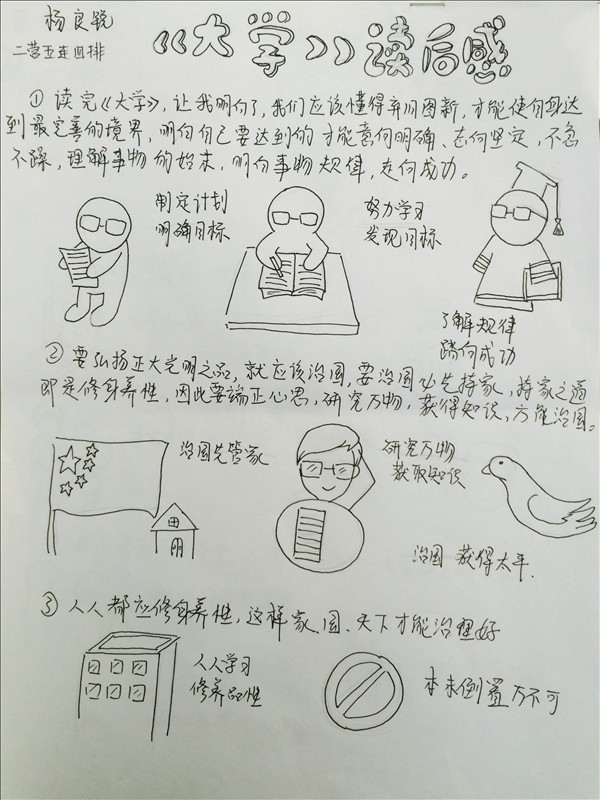 杨良锐
二营五连四排
《大学》读后感
①读完《大学》，让我明白了，我们应该懂得弃旧图新，才能使自身达
到最完善的境界，明白自己要达到的才能意向明确、志向坚定，不急
不躁，理解事物的始末，明白事物规律，走向成功。
制定计划
明确目标
努力学习
发现目标
了解规律
踏向成功
②要弘扬正大光明之品，就应该治国，要治国必先持家，持家之道
即是修身养性，因此要端正心思，研究万物，获得知识，方能治国。
治国先管家
研究万物
获取知识
治国 获得太平.
③人人都应修身养性，这样家、国、天下才能治理好
人人学习
修养品性
本末倒置万不可